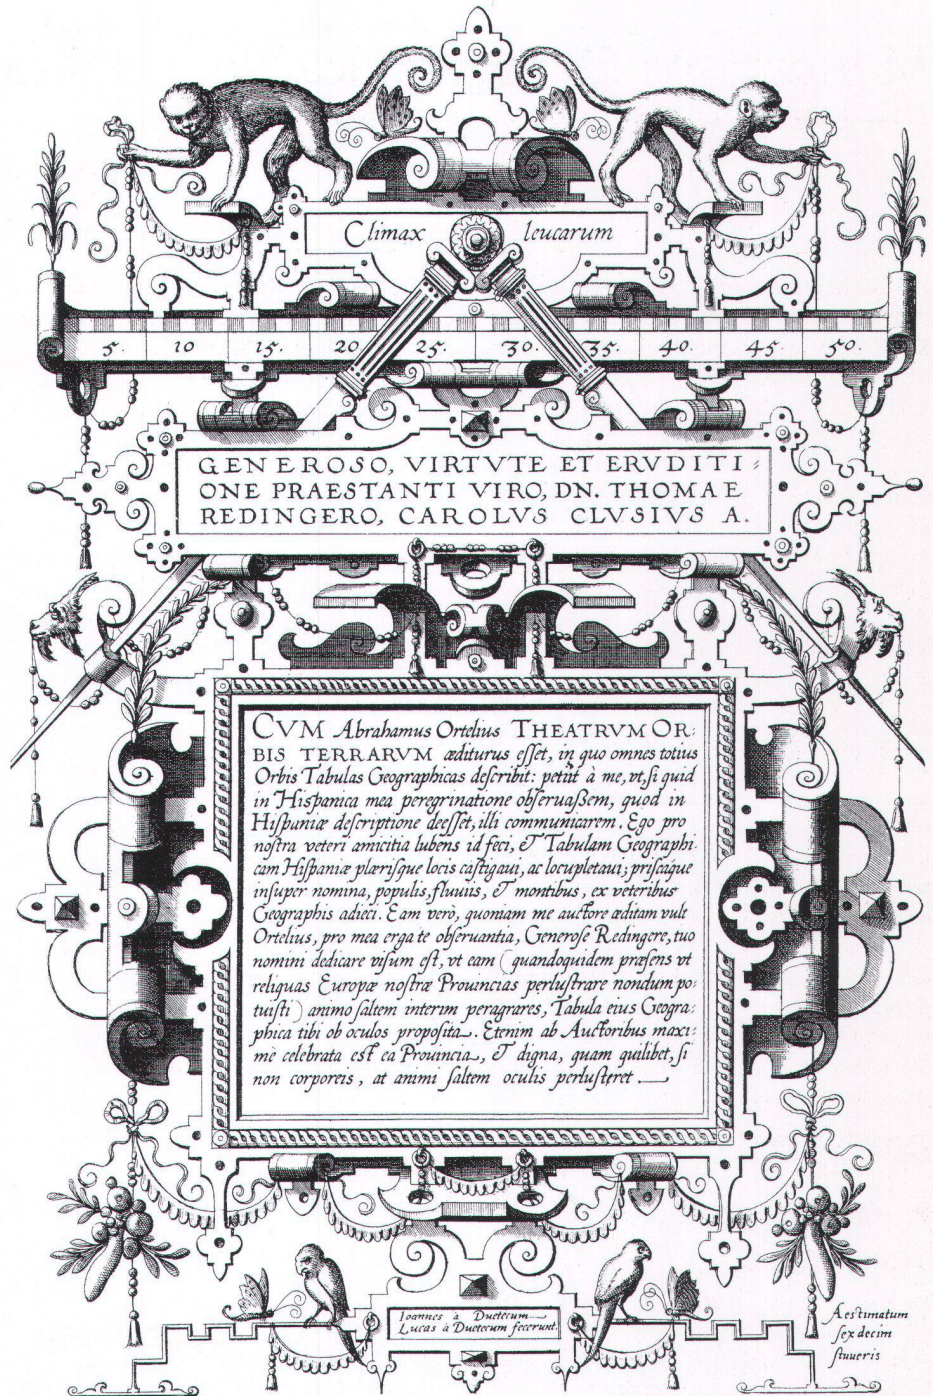 Climax leucarum
5. 10 15. 20 25. 30. 35. 40. 45. 50.
GENEROSO, VIRTVTE ET ERVDITI⸗
ONE PRAESTANTI VIRO, DN. THOMAE
REDINGERO, CAROLVS CLVSIVS A.
CVM Abrahamus Ortelius THEATRVM OR⸗
BIS TERRARVM æditurus eſſet, in quo omnes totius
Orbis Tabulas Geographicas deſcribit: petijt à me, vt, ſi quid
in Hiſpanica mea peregrinatione obſeruaßem, quod in
Hiſpaniæ deſcriptione deeſſet, illi communicarem. Ego pro
noſtra veteri amicitia lubens id feci, & Tabulam Geographi⸗
cam Hiſpaniæ plæriſque locis caſtigaui, ac locupletaui; priſcáque
inſuper nomina, populis, fluuiis, & montibus, ex veteribus
Geographis adieci. Eam verò, quoniam me auctore æditam vult
Ortelius, pro mea erga te obſeruantia, Generoſe Redingere, tuo
nomini dedicare viſum eſt, vt eam (quandoquidem præſens vt
reliquas Europæ noſtræ Prouincias perluſtrare nondum po⸗
tuiſti) animo ſaltem interim peragrares, Tabula eius Geogra⸗
phica tibi ob oculos propoſita. Etenim ab Auctoribus maxi⸗
mè celebrata eſt ea Prouincia, & digna, quam quilibet, ſi
non corporeis, at animi ſaltem oculis perluſtret
Ioannes à Duetecum
Lucas à Duetecum fecerunt.
Aeſtimatum
ſex decim
ſtuueris